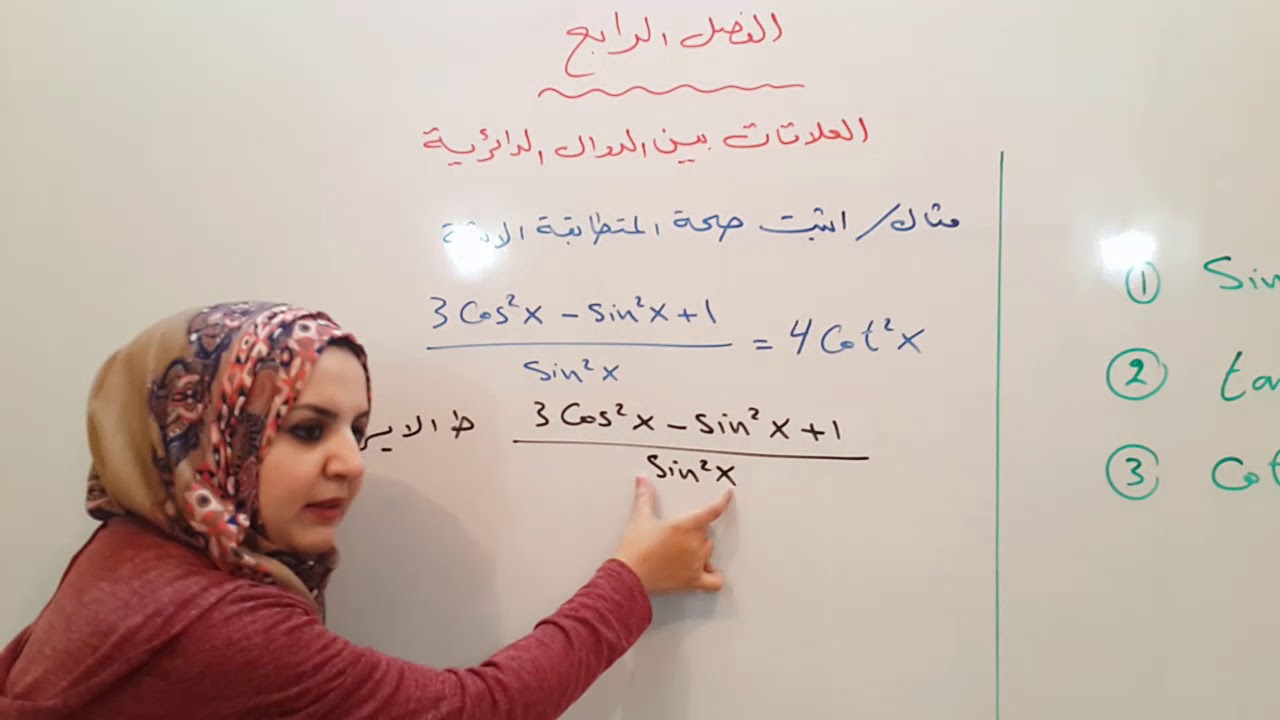 الفصل الرابع
العلاقات بين الدوال الدائرية
مثال / اثبت صحة المتطابقة
3 Cos²x - Sin²x + 1
= 4 Cot²x
Sin²x
ط الايسر
3 Cos²x - Sin²x + 1
Sin²x
① Sin
② tan
③ Cot